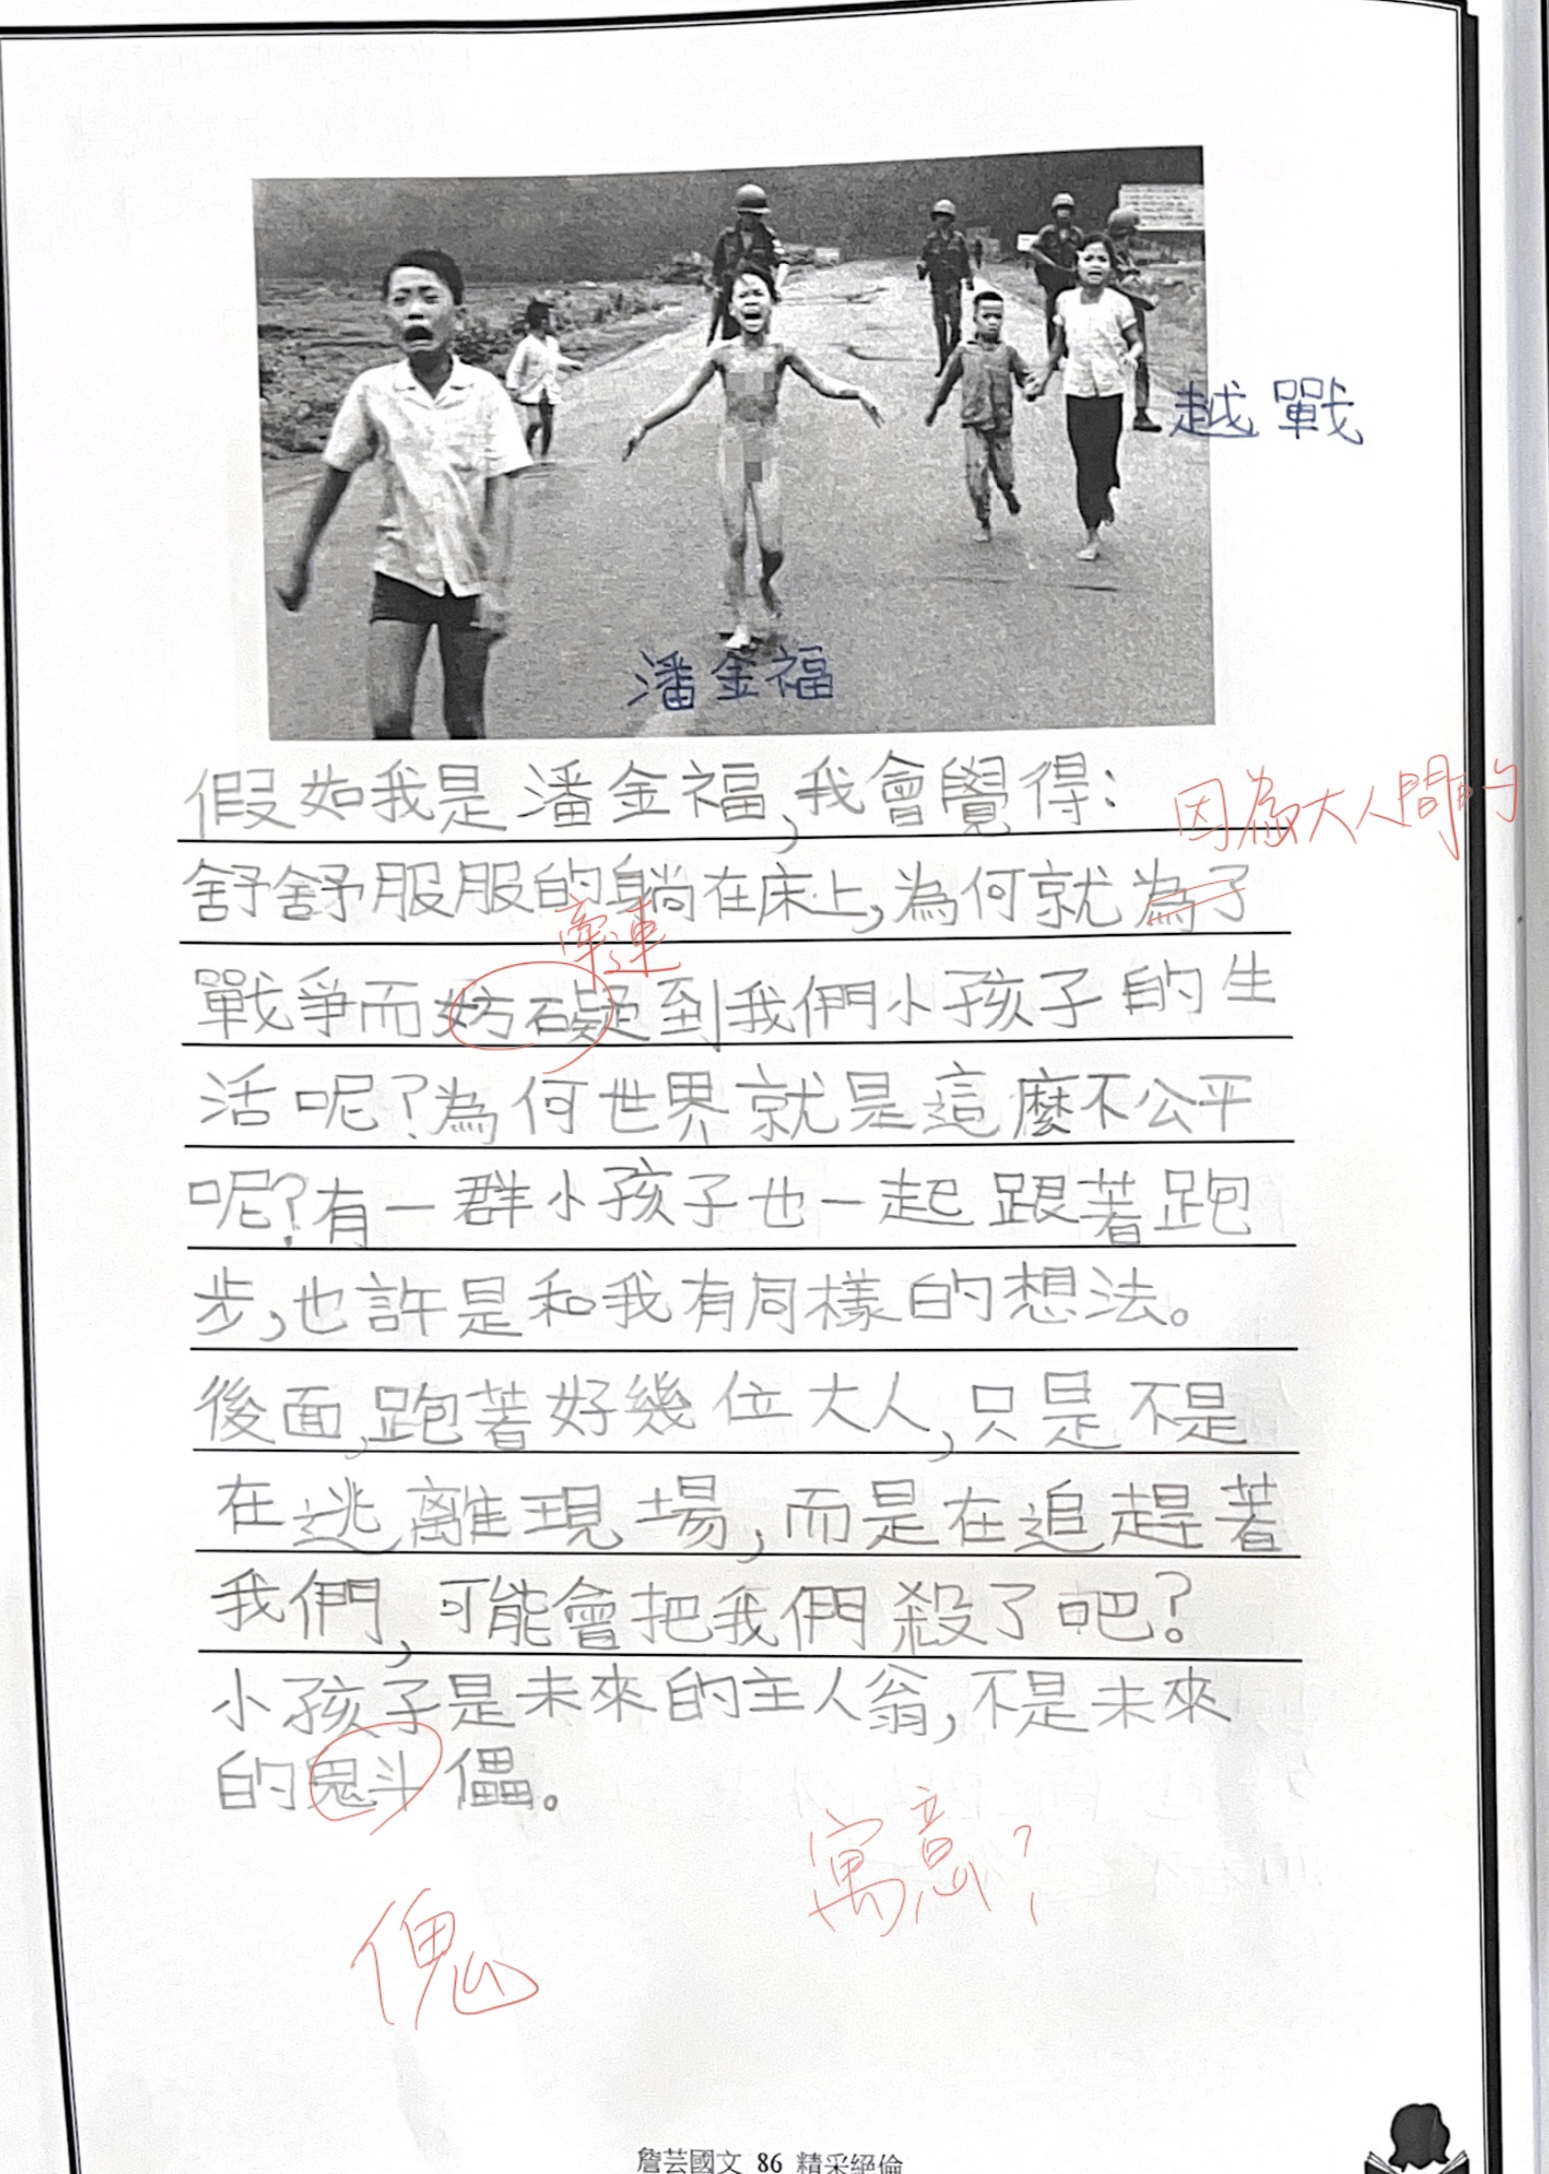 越戰
潘金福
假如我是潘金福,我會覺得:
因為大人間的
舒舒服服的躺在床上,為何就為了
牽連
戰爭而妨礙到我們小孩子的生
活呢?為何世界就是這麼不公平
呢?有一群小孩子也一起跟著跑
步,也許是和我有同樣的想法。
後面,跑著好幾位大人,只是不是
在逃離現場,而是在追趕著
我們,可能會把我們殺了吧?
小孩子是未來的主人翁,不是未來
的魁儡。
寓意?
傀
詹芸國文 86 精采絕倫